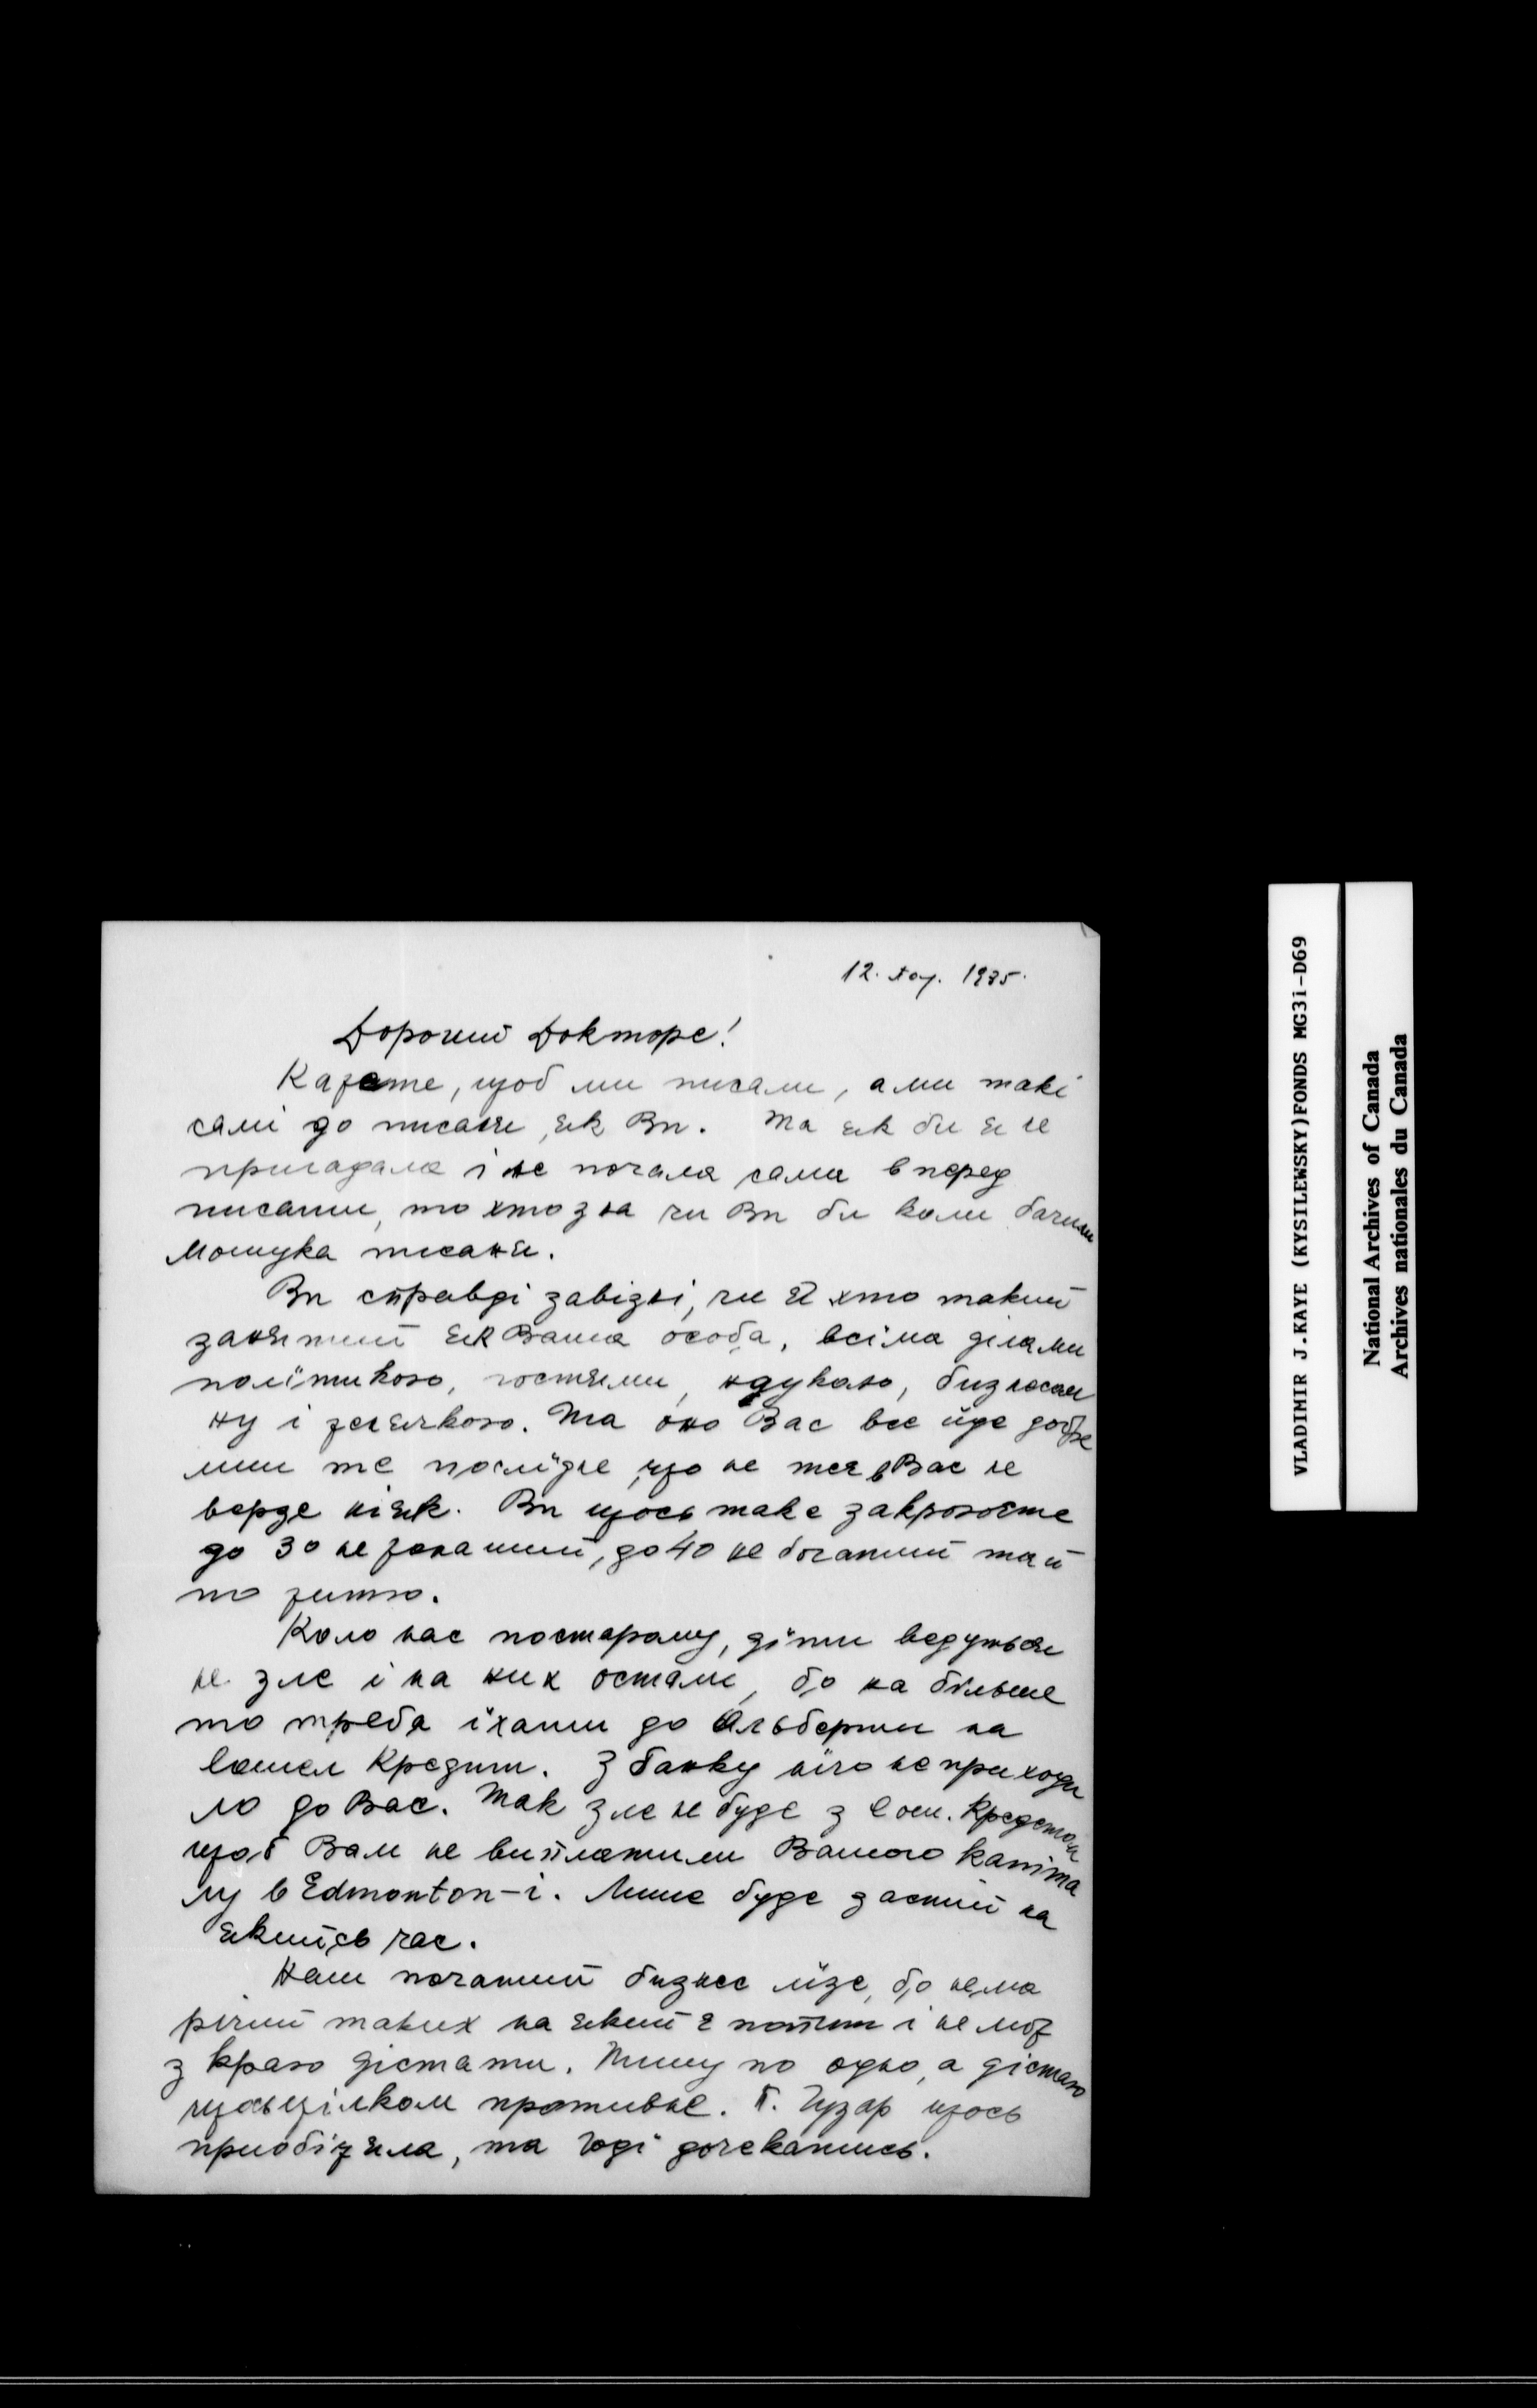 12. Лоу. 1935.
Дорогий Докторе!
Кажете, щоб ми писали, а ми такі
самі до писаня, як Ви. Та як би я не
пригадала і не почала сама вперед
писати, то хто зна чи Ви би коли бачили
Мощука писаня.
Ви справді завізні, чи є хто такий
занятий як Ваша особа, всіма ділами
полїтикою, гостями, наукою, бизнесом
ну і жіночкою. Та око Вас все йде добре
лиш те послїдне що не тея в Вас не
верзе ніяк. Ви щось таке закроюєте
до 30 не жонатий, до 40 не богатий тай
по життю.
Коло нас постарому, дїти ведуться
не зле і на них остали, бо на більше
то треба їхати до Альберти на
сошел Кредит. З банку нічо не приходи
ло до Вас. Так зле не буде з сош. Кредитом
щоб Вам не виплатили Вашого капіта
лу в Edmonton-і. Лише буде застій на
якийсь час.
Наш початий бизнес лїзе, бо нема
річий таких на який є попит і не мож
з краю дістати. Пишу по одно, а дістаю
щось цілком противне. П. Гузар щось
приобіцяла, та годі дочекатись.
VLADIMIR J.KAYE (KYSILEWSKY)FONDS MG31-D69
National Archives of Canada
Archives nationales du Canada